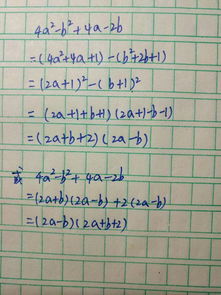 4a²-b²+4a-2b
=(4a²+4a+1)-(b²+2b+1)
=(2a+1)²-(b+1)²
=(2a+1+b+1)(2a+1-b-1)
=(2a+b+2)(2a-b)
或 4a²-b²+4a-2b
=(2a+b)(2a-b)+2(2a-b)
=(2a-b)(2a+b+2)